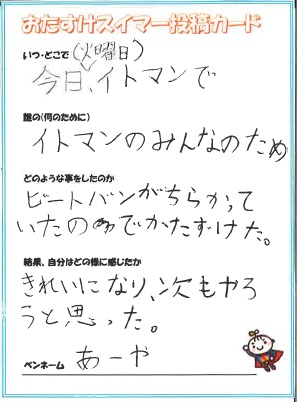 おたすけスイマー投稿カード
いつ・どこで(火曜日)
今日、イトマンで
誰の(何のために)
イトマンのみんなのため
どのような事をしたのか
ビートバンがちらかって
いたのでかたずけた。
結果、自分はどの様に感じたか
きれいになり、次もやろ
うと思った。
ペンネーム あーや